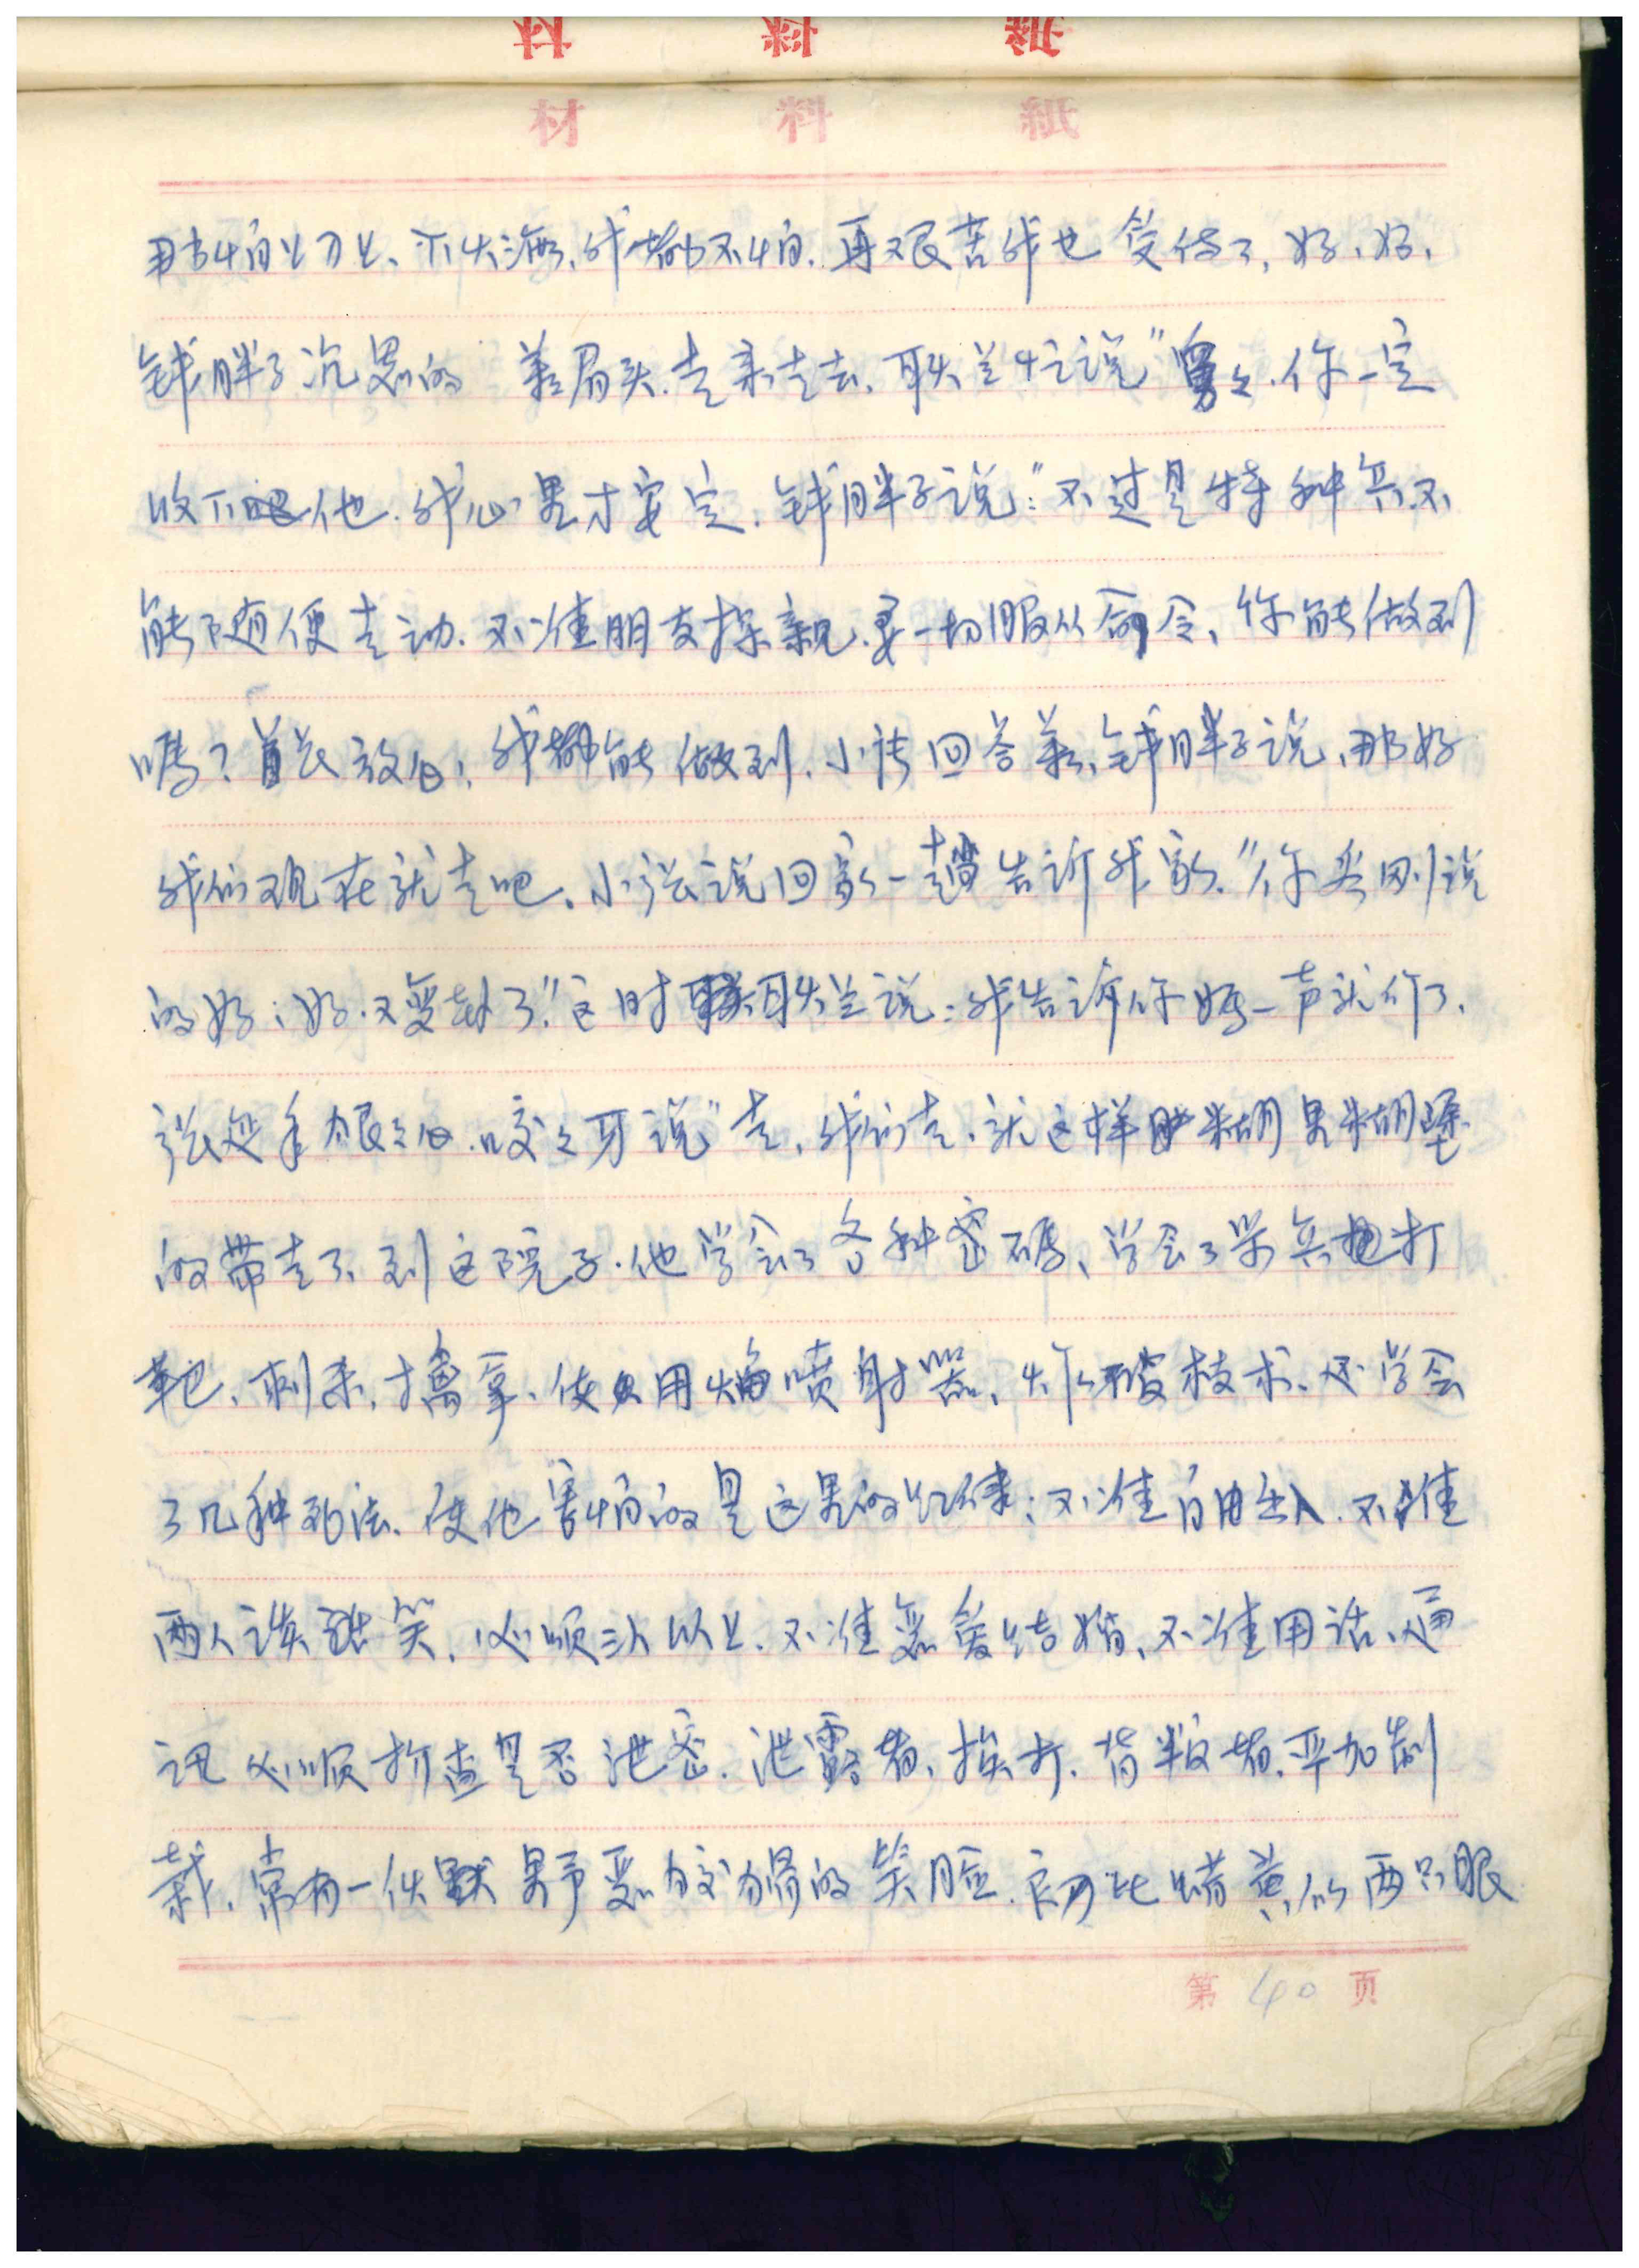 材料紙
那怕上刀山、下火海、我都不怕.再艰苦我也受得了,好、好、
钱胖子沉思的 着眉头.走来走去.耿兰忙说"舅舅.你一定
收下他.我心里才安定.钱胖子说:"不过是特种兵.不
能随便走动.不准朋友探亲.要一切服从命令、你能做到
吗?首长放心,我都能做到.小张回答着、钱胖子说、那好
我们现在就走吧.小张说回家一趟告诉我家."你当刚说
的好、好.又变卦了."这时耿兰说:我告诉你妈一声就行了.
张延年狠之心.咬之牙说"走,我们走.就这样糊里糊塗
的带走了.到这院子.他学会了各种密码、学会了 兵 打
靶、刺杀,擒拿、使用 喷射器、炸破技术.还学会
了几种死法.使他害怕的是这里的纪律:不准自由出入.不准
两人谈 笑,必须三人以上.不准恋爱结婚、不准用话、通
讯必须拆查是否泄密.泄露者,挨打.背叛者.平加制
裁.常有一伙 野恶 的笑脸. 比蜡黄似两只眼
第 40 页